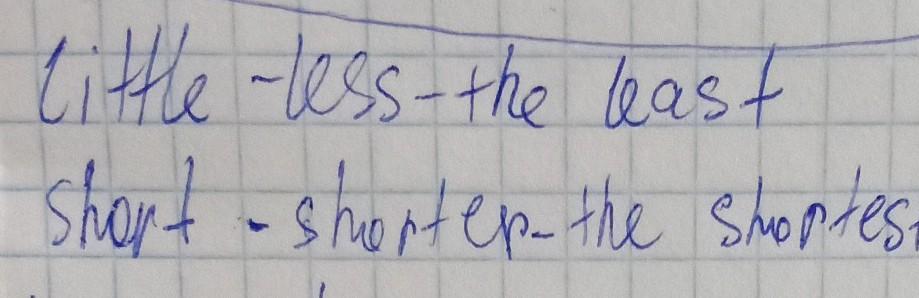 little - less - the least
short - shorter - the shortes